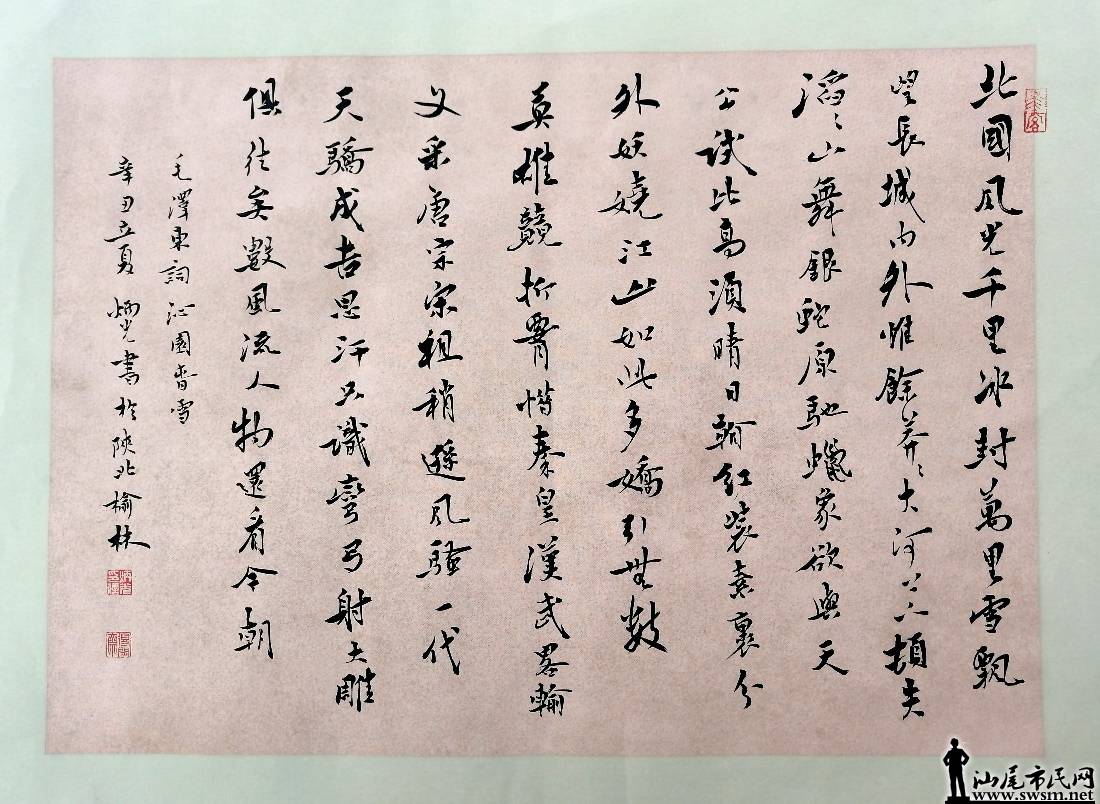 北國風光千里冰封萬里雪飄
望長城內外惟餘莽〻大河上下頓失
滔〻山舞銀蛇原馳蠟象欲與天
公試比高須晴日看紅裝素裹分
外妖嬈江山如此多嬌引無數
英雄競折腰惜秦皇漢武畧輸
文采唐宗宋祖稍遜風騷一代
天驕成吉思汗只識彎弓射大雕
俱往矣數風流人物還看今朝
毛澤東詞沁園春雪
辛丑立夏炳光書於陝北榆林
汕尾市民网
www.swsm.net